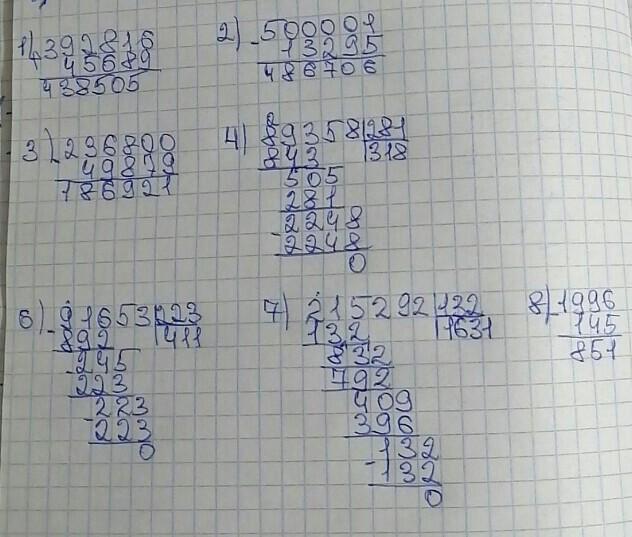 1) + 392816
45689
438505
2) - 500001
13295
486706
3) - 236800
49879
186921
4) 89358 281
843 318
505
281
- 2248
2248
0
6) - 91653 223
892 411
- 245
223
- 223
223
0
7) 215292 132
132 1631
832
792
409
396
- 132
132
0
8) - 1996
145
851